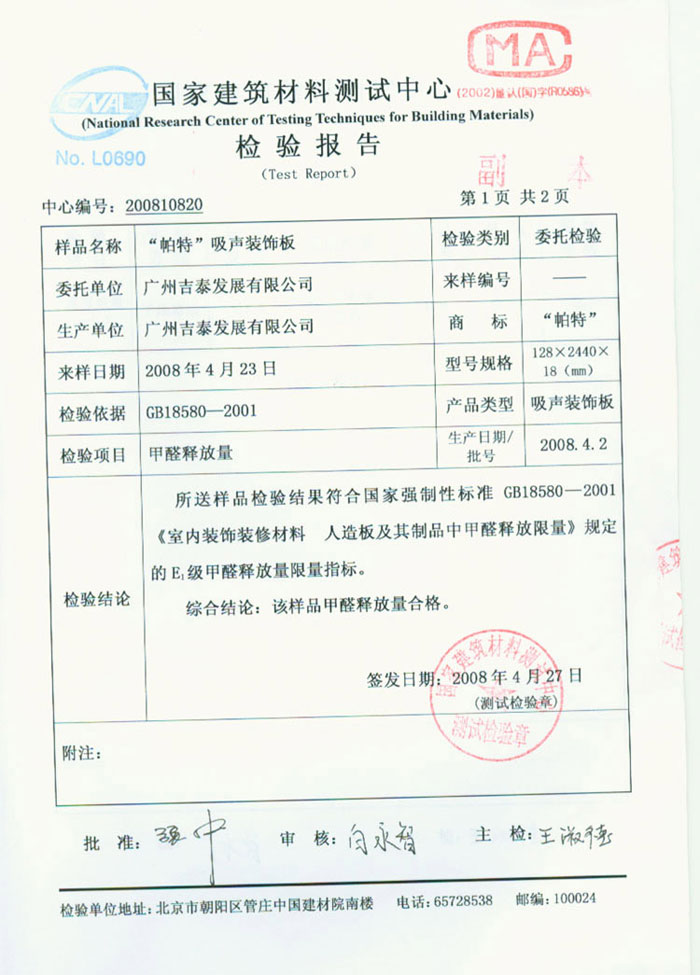 CNAL
No. L0690
MA
(2002)量认(国)字(R0586)号
国家建筑材料测试中心
(National Research Center of Testing Techniques for Building Materials)
检验报告
(Test Report)
副 本
中心编号：200810820
第1页 共2页
样品名称 “帕特”吸声装饰板 检验类别 委托检验
委托单位 广州吉泰发展有限公司 来样编号 ——
生产单位 广州吉泰发展有限公司 商 标 “帕特”
来样日期 2008年4月23日 型号规格 128×2440×
18（mm）
检验依据 GB18580—2001 产品类型 吸声装饰板
检验项目 甲醛释放量 生产日期/
批号 2008.4.2
检验结论
所送样品检验结果符合国家强制性标准 GB18580—2001
《室内装饰装修材料 人造板及其制品中甲醛释放限量》规定
的E₁级甲醛释放量限量指标。
综合结论：该样品甲醛释放量合格。
签发日期：2008年4月27日
(测试检验章)
国家建筑材料测试中心
测试检验章
附注：
批 准： 审 核：白永智 主 检：王淑
检验单位地址：北京市朝阳区管庄中国建材院南楼 电话：65728538 邮编：100024